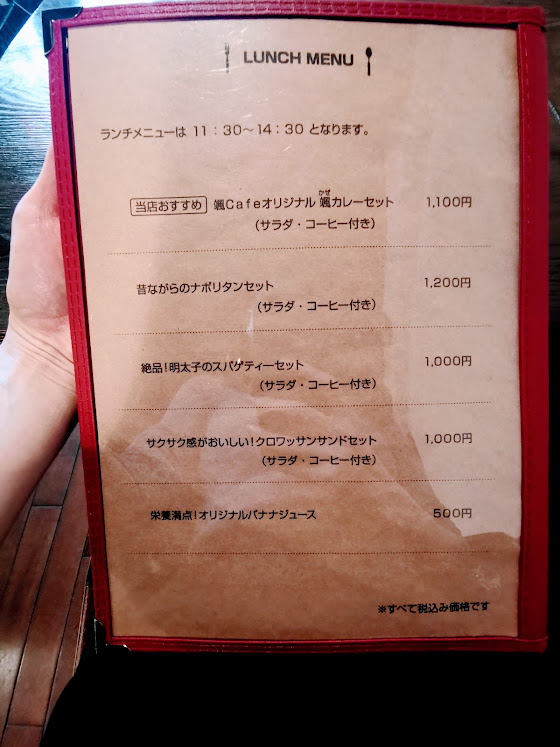 LUNCH MENU
ランチメニューは 11：30～14：30 となります。
当店おすすめ 颯Cafeオリジナル 颯カレーセット 1,100円
かぜ
（サラダ・コーヒー付き）
昔ながらのナポリタンセット 1,200円
（サラダ・コーヒー付き）
絶品！明太子のスパゲティーセット 1,000円
（サラダ・コーヒー付き）
サクサク感がおいしい！クロワッサンサンドセット 1,000円
（サラダ・コーヒー付き）
栄養満点！オリジナルバナナジュース 500円
※すべて税込み価格です